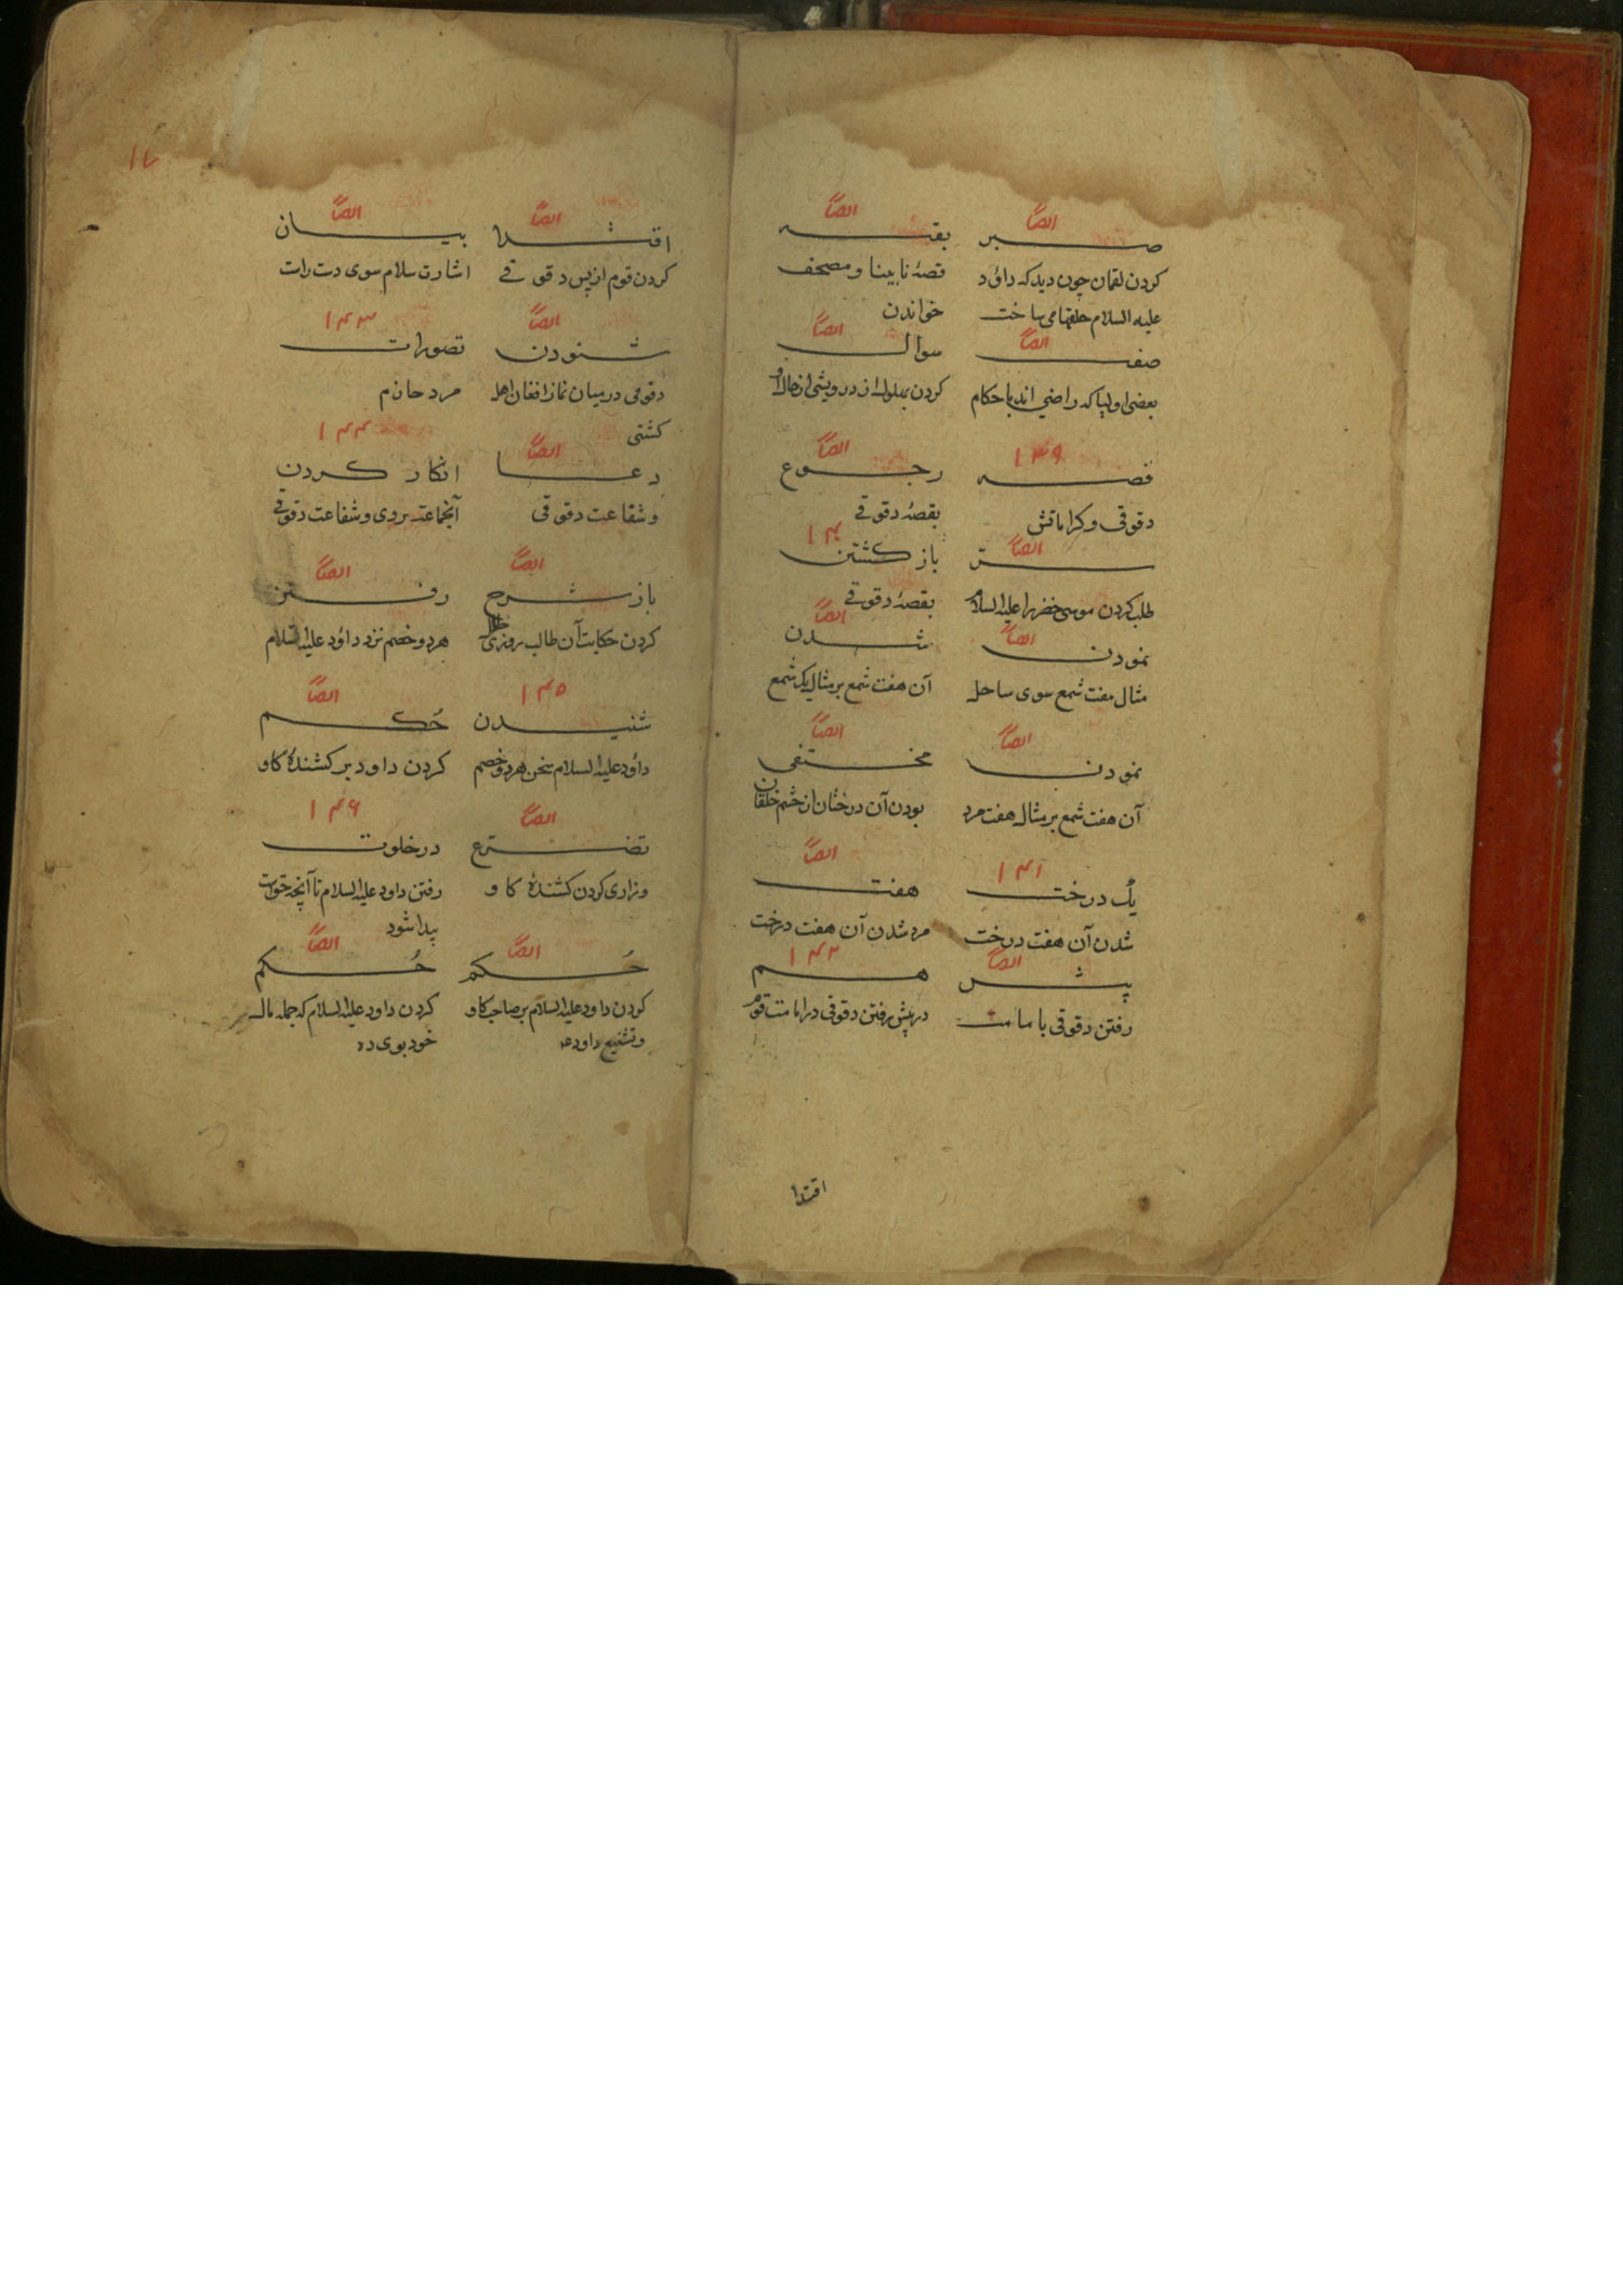 ایضاً
صبر
کردن لقمان چون دید که داؤد
علیه السلام حلقها می ساخت
ایضاً
بقیه
قصهٔ نابینا و مصحف
خواندن
ایضاً
صفت
بعضی اولیا که راضی اند باحکام
ایضاً
سوال
کردن بهلول از درویشی از حال او
۱۳۹
قصه
دقوقی و کراماتش
ایضاً
رجوع
بقصهٔ دقوقی
ایضاً
سر
طلب کردن موسی خضر را علیه السلام
۱۴۰
باز کشتن
بقصهٔ دقوقی
ایضاً
نمودن
مثال هفت شمع سوی ساحل
ایضاً
شدن
آن هفت شمع بر مثال یک شمع
ایضاً
نمودن
آن هفت شمع بر مثال هفت مرد
ایضاً
مختفی
بودن آن درختان از چشم خلقان
۱۴۱
یک درخت
شدن آن هفت درخت
ایضاً
هفت
مرد شدن آن هفت درخت
ایضاً
پیش
رفتن دقوقی بامامت
۱۴۲
هم
در پیش رفتن دقوقی در امامت قوم
اقتدا
۱۷
ایضاً
اقتدا
کردن قوم از پس دقوقی
ایضاً
بیان
اشارت سلام سوی دست راست
ایضاً
شنودن
دقوقی در میان نماز افغان اهل
کشتی
۱۴۳
تصورات
مرد حازم
ایضاً
دعا
و شفاعت دقوقی
۱۴۴
انکار کردن
آنجماعت بر وی و شفاعت دقوقی
ایضاً
باز شرح
کردن حکایت آن طالب روزی حلال
ایضاً
رفتن
هر دو خصم نزد داؤد علیه السلام
۱۴۵
شنیدن
داؤد علیه السلام سخن هر دو خصم
ایضاً
حُکم
کردن داود بر کشندهٔ کاو
ایضاً
تضرع
و زاری کردن کشندهٔ کاو
۱۴۶
در خلوت
رفتن داود علیه السلام تا آنچه حقست
پیدا شود
ایضاً
حُکم
کردن داود علیه السلام بر صاحب کاو
و تشنیع داود ع
ایضاً
حُکم
کردن داود علیه السلام که جمله مال
خود بوی ده